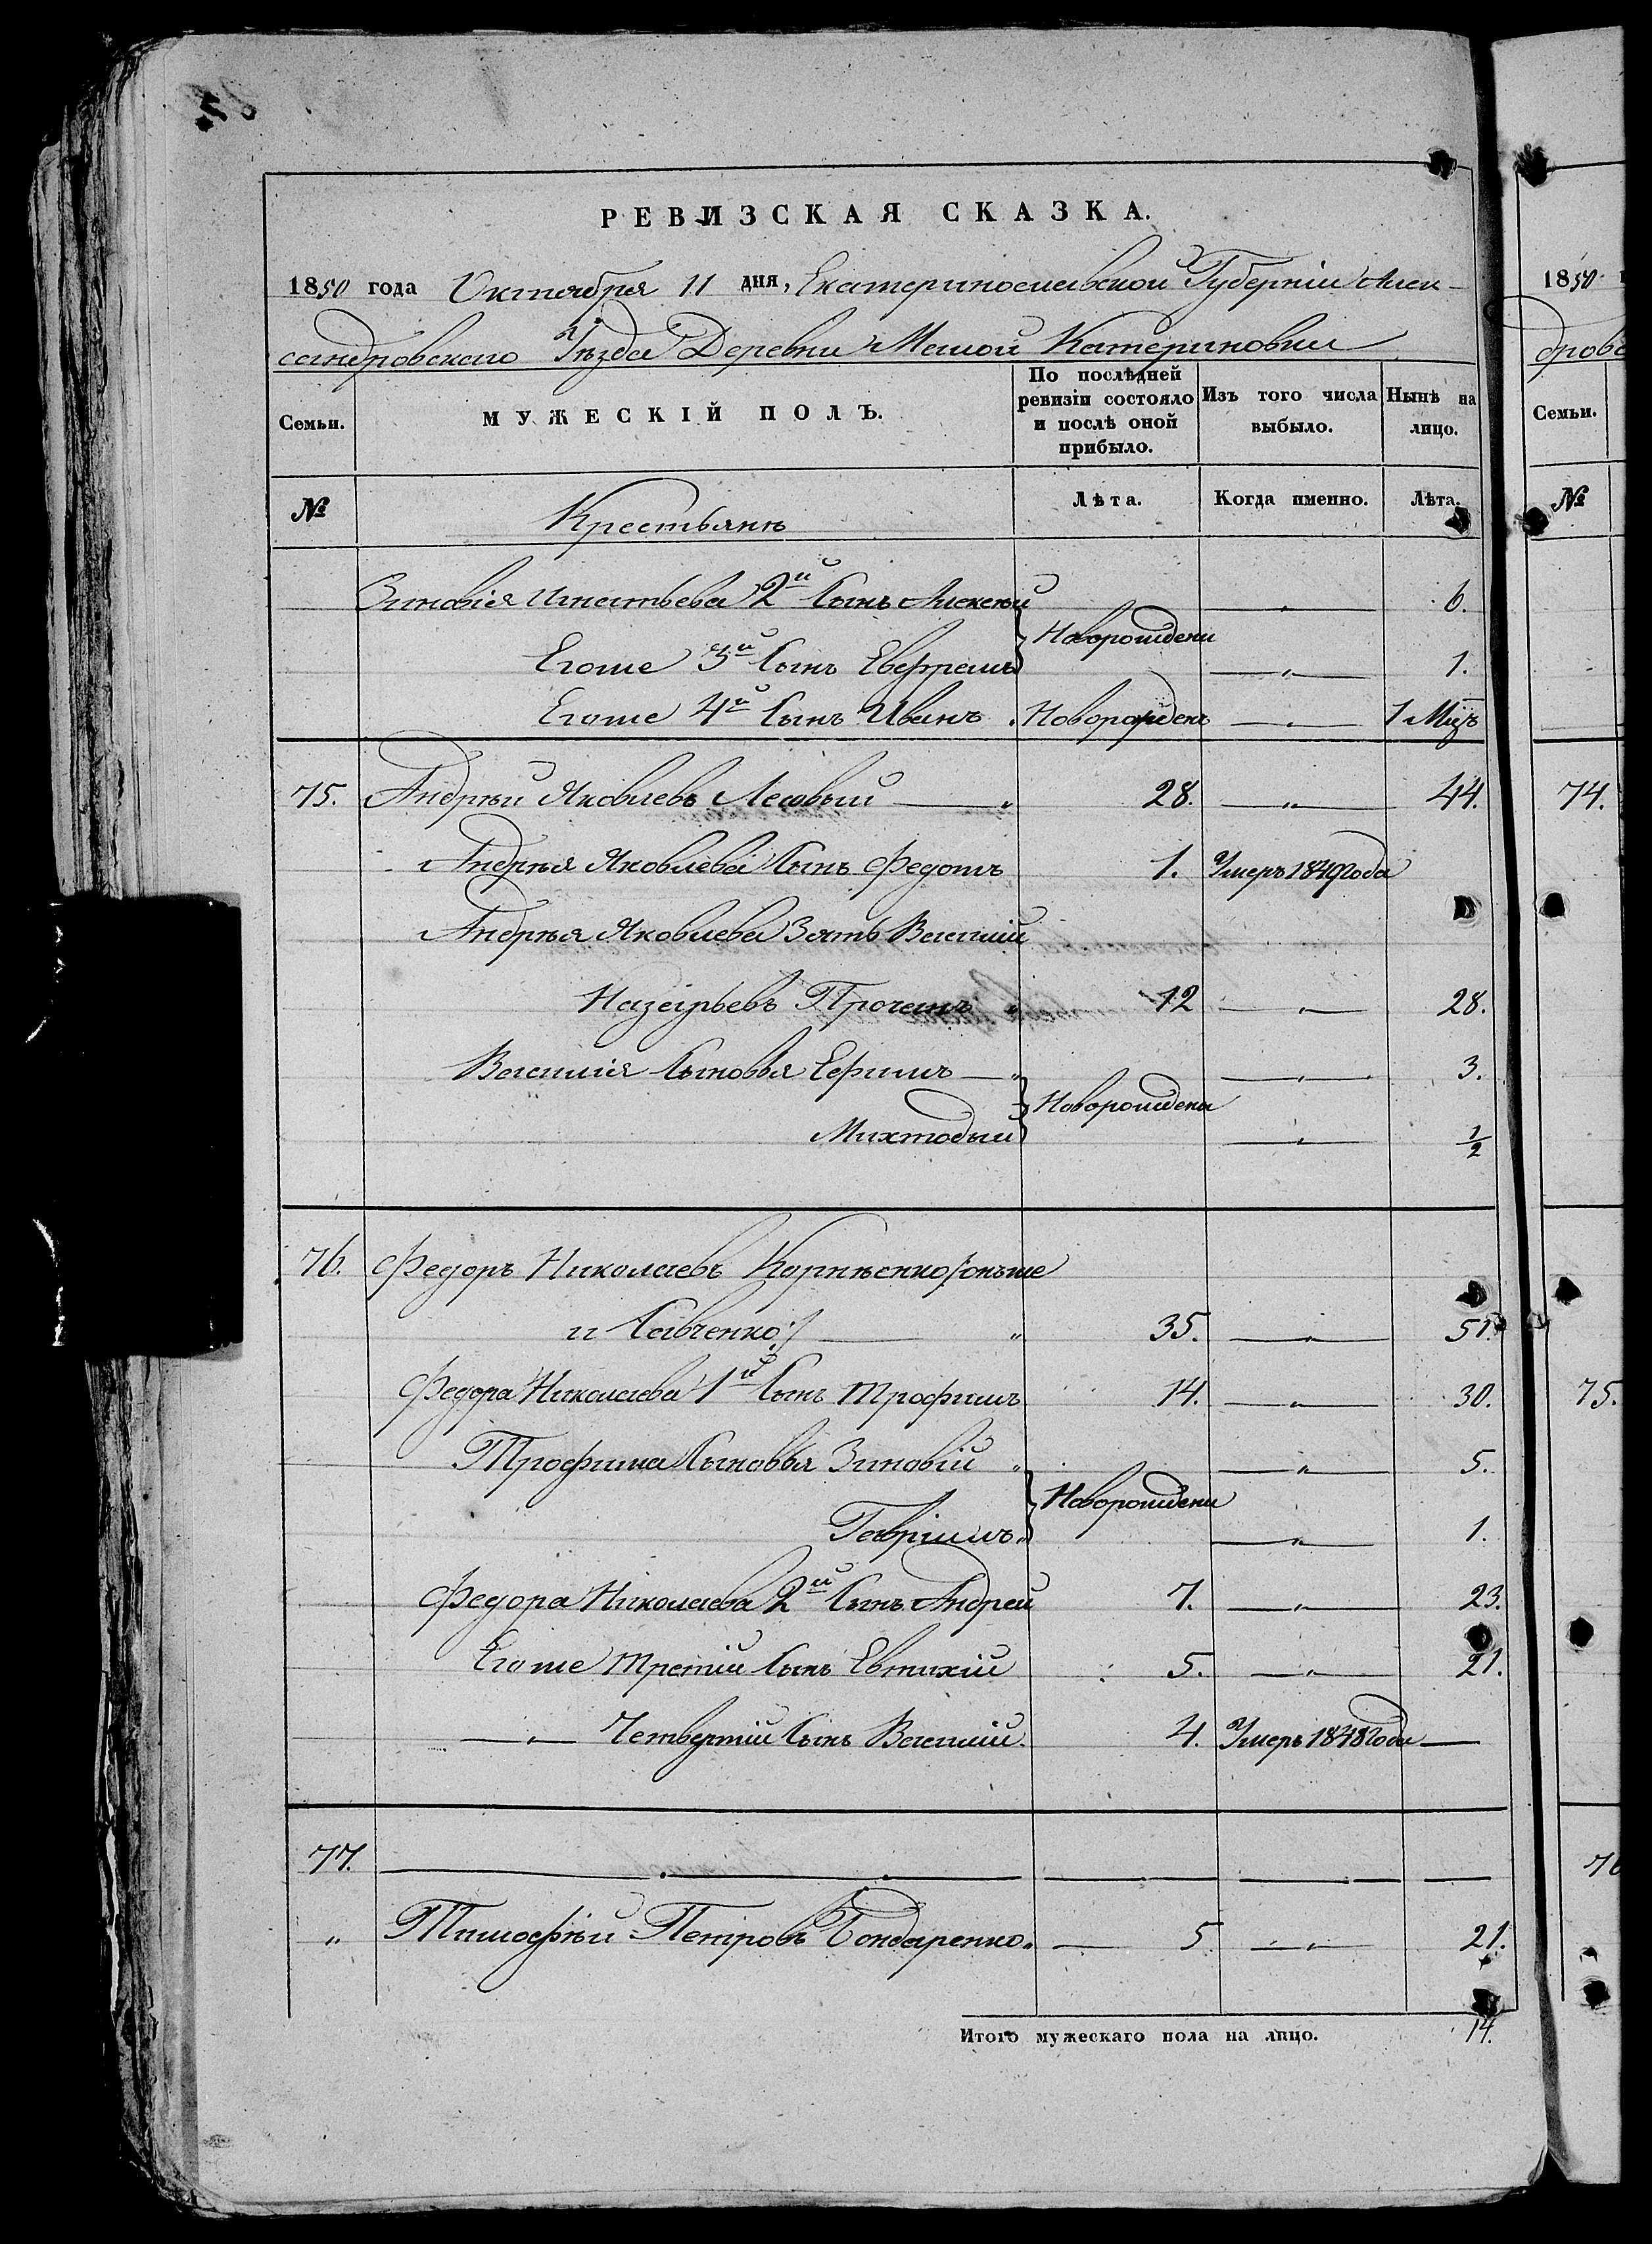 РЕВИЗСКАЯ СКАЗКА.
1850 года Октября 11 дня, Екатеринославской Губерніи Алек-
сандровскаго Уѣзда Деревни Малой Катериновки
Семьи.
МУЖЕСКІЙ ПОЛЪ.
По послѣдней ревизіи состояло и послѣ оной прибыло.
Изъ того числа выбыло.
Нынѣ на лицо.
№
Крестьянѣ
Лѣта.
Когда именно.
Лѣта.
Зиновія Игнатьева 2й Сынъ Алексѣй — „ — 6.
Новорождены
Егоже 3й Сынъ Евфремъ — „ — 1.
Егоже 4й Сынъ Иванъ Новорожденъ — „ — 1 Мцъ
75. Андрѣй Яковлевъ Лесовый — „ 28. — „ — 44.
Андрѣя Яковлева Сынъ Федотъ 1. Умеръ 1849 года
Андрѣя Яковлева Зять Василій
Назарьевъ Прочанъ „ 12 — „ — 28.
Василія Сыновья Ефимъ — „ — „ — 3.
Новорождены
Михтодый — „ — 1/2
76. Федоръ Николаевъ Корнѣенко /:онъже
и Савченко:/ — „ 35. — „ — 51.
Федора Николаева 1й Сынъ Трофимъ 14. — „ — 30.
Трофима Сыновья Зиновій „ — „ — 5.
Новорождены
Гавріилъ „ — „ — 1.
Федора Николаева 2й Сынъ Андрей 7. — „ — 23.
Егоже третій Сынъ Евтихій 5. — „ — 21.
— „ — Четвертій Сынъ Василій 4. Умеръ 1848 года —
77.
„ Тимофѣй Петровъ Бондаренко „ — 5 — „ — 21.
Итого мужескаго пола на лицо. 14.
1850
дровс
Семьи.
№
74.
75.
76